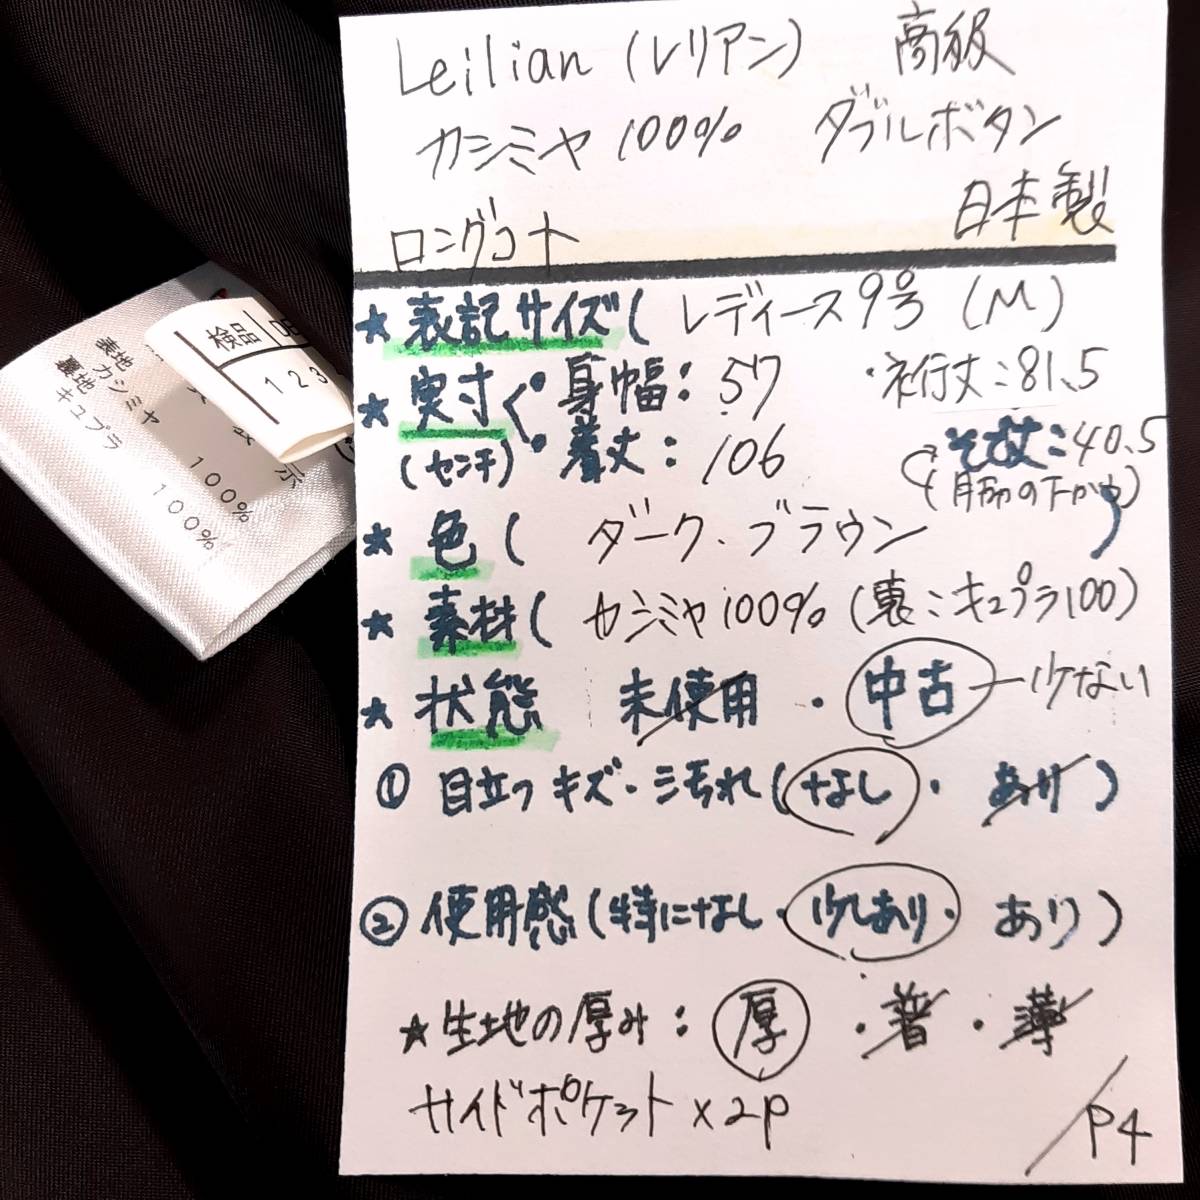 Leilian (レリアン) 高級
カシミヤ 100% ダブルボタン
日本製
ロングコート
★ 表記サイズ ( レディース 9号 (M)
★ 実寸 < ・身幅: 57 ・裄行丈:81.5
(センチ) ・着丈: 106 そで丈:40.5
(脇の下から)
★ 色 ( ダーク.ブラウン )
★ 素材 ( カシミヤ100% (裏:キュプラ100)
★ 状態 未使用 ・ 中古 ー少ない
① 目立つキズ・汚れ (なし ・ あり)
② 使用感 (特になし・少しあり・ あり)
★生地の厚み: 厚 ・普・薄
サイドポケット×2P
/P4
検品
123
表地
カシミヤ 100%
裏地
キュプラ 100%
示